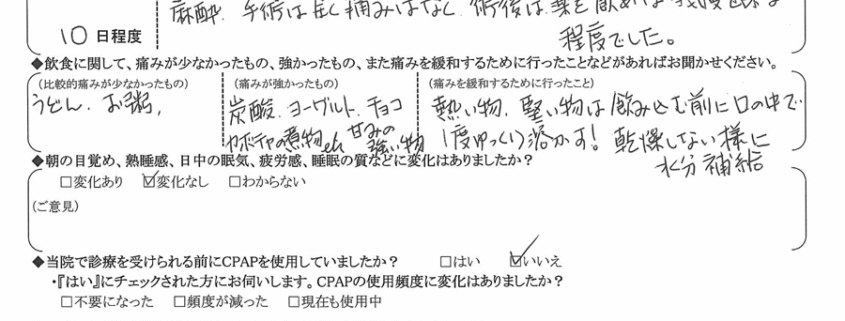 麻酔、手術は全く痛みはなく、術後は薬を飲めば
10 日程度
程度でした。
◆飲食に関して、痛みが少なかったもの、強かったもの、また痛みを緩和するために行ったことなどがあればお聞かせください。
(比較的痛みが少なかったもの) (痛みが強かったもの) (痛みを緩和するために行ったこと)
うどん、お粥、 炭酸、ヨーグルト、チョコ 熱い物、堅い物は飲み込む前に口の中で
カボチャの煮物etc 甘みの強い物 1度ゆっくり溶かす! 乾燥しない様に
水分補給
◆朝の目覚め、熟睡感、日中の眠気、疲労感、睡眠の質などに変化はありましたか?
□変化あり ☑変化なし □わからない
(ご意見)
◆当院で診療を受けられる前にCPAPを使用していましたか? □はい ☑いいえ
・『はい』にチェックされた方にお伺いします。CPAPの使用頻度に変化はありましたか?
□不要になった □頻度が減った □現在も使用中